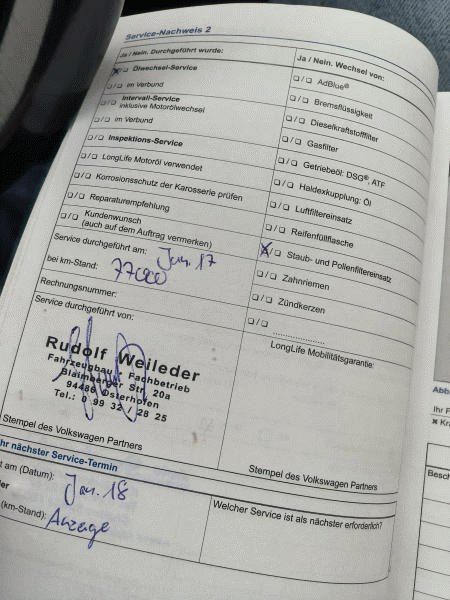 Service-Nachweis 2
Ja / Nein. Durchgeführt wurde:
Ölwechsel-Service
im Verbund
Intervall-Service
inklusive Motorölwechsel
im Verbund
Inspektions-Service
LongLife Motoröl verwendet
Korrosionsschutz der Karosserie prüfen
Reparaturempfehlung
Kundenwunsch
(auch auf dem Auftrag vermerken)
Service durchgeführt am: Jan. 17
bei km-Stand: 77000
Rechnungsnummer:
Service durchgeführt von:
Rudolf Weileder
Fahrzeugbau - Fachbetrieb
Blaimberger Str. 20a
94486 Osterhofen
Tel.: 0 99 32 / 28 25
Stempel des Volkswagen Partners
Ja / Nein. Wechsel von:
AdBlue®
Bremsflüssigkeit
Dieselkraftstofffilter
Gasfilter
Getriebeöl: DSG®, ATF
Haldexkupplung: Öl
Luftfiltereinsatz
Reifenfüllflasche
Staub- und Pollenfiltereinsatz
Zahnriemen
Zündkerzen
LongLife Mobilitätsgarantie:
Stempel des Volkswagen Partners
hr nächster Service-Termin
t am (Datum): Jan. 18
der
(km-Stand): Anzeige
Welcher Service ist als nächster erforderlich?
Abb
Ihr F
Kra
Besch